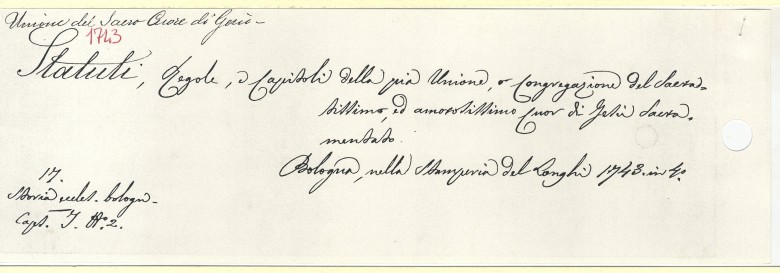 Unione del Sacro Cuore di Gesù -
1743
Statuti, Regole, e Capitoli della pia Unione, o Congregazione del Sacra=
tissimo, ed amorosissimo Cuor di Gesù Sacra=
mentato.
Bologna, nella Stamperia del Longhi 1743. in 4°.
17.
Storia eccles. bologn.
Caps. I. N°. 2.